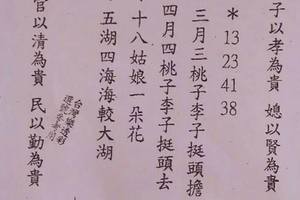 子以孝為貴 媳以賢為貴
*
13
23
41
38
三月三桃子李子挺頭擔
四月四桃子李子挺頭去
十八姑娘一朵花
五湖四海海較大湖
台灣樂透彩
選號參考用
官以清為貴 民以勤為貴